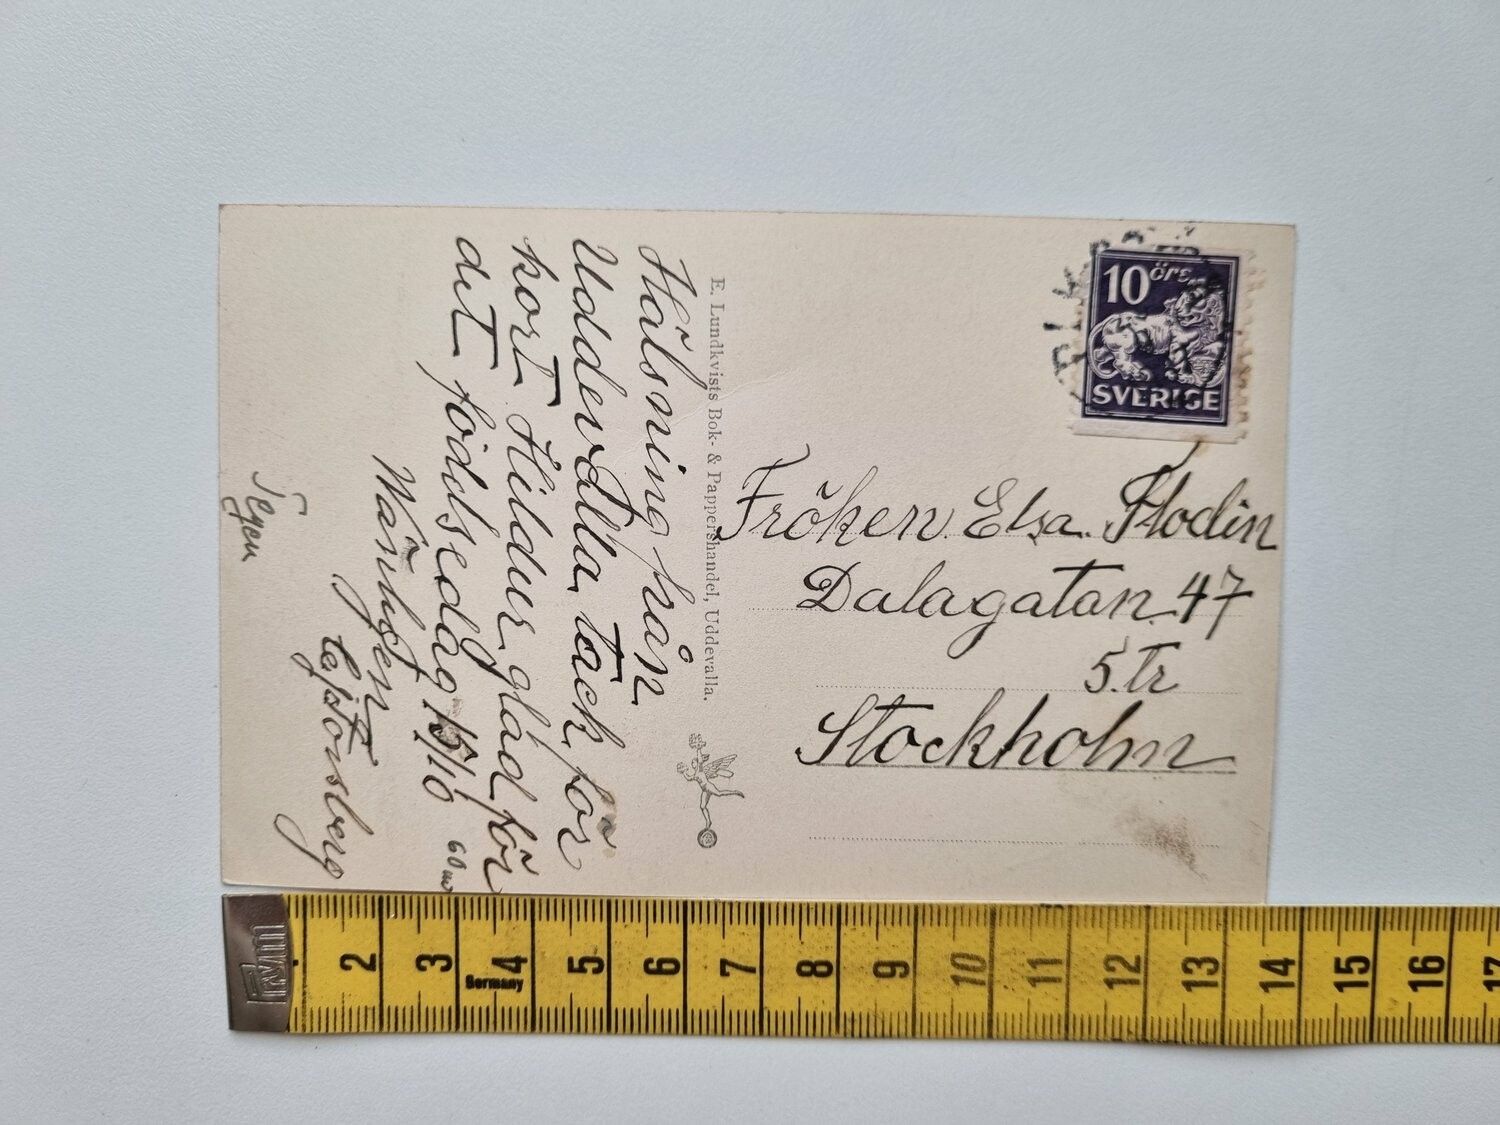 Hälsning från
Uddevalla, tack för
kort Hildur glad för
det födelsedag 15/10
Vänligen
E. Lundkvists Bok- & Pappershandel, Uddevalla.
10 öre
SVERIGE
Fröken. Elsa. Flodin
Dalagatan. 47
5. tr
Stockholm
2 3 4 5 6 7 8 9 10 11 12 13 14 15 16 17
Germany